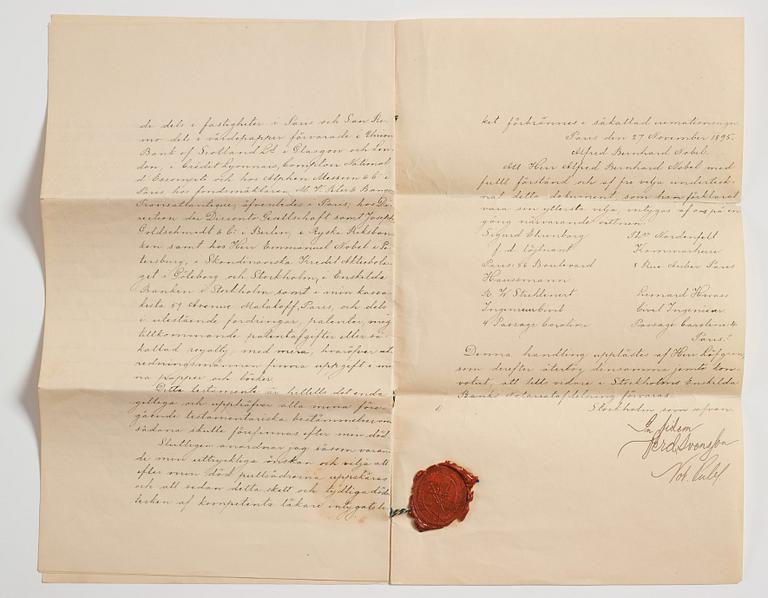 de dels i fastigheter i Paris och San Re-
mo dels i värdepapper förvarade i Union
Bank of Scotland Ld i Glasgow och Lon-
don, i Crédit Lyonnais, Comptoir National
d'Escompte och hos Alphen Messin & Co i
Paris hos fondsmäklaren M. V. Peter & Banque
Transatlantique, äfvenledes i Paris, hos Di-
rection der Disconto Gesellschaft samt Joseph
Goldschmidt & Co i Berlin, i Ryska Riksban-
ken samt hos Herr Emmanuel Nobel i Pe-
tersburg, i Skandinaviska Kredit Aktiebola-
get i Göteborg och Stockholm, i Enskilda
Banken i Stockholm samt i min kassa-
kista 59 Avenue Malakoff, Paris, och dels
i utestående fordringar, patenter, mig
tillkommande patentafgifter eller så
kallad royalty, med mera, hvaröfver ut-
redningsmännen finna uppgift i mi-
na papper och böcker.
Detta testamente är hittills det enda
giltiga och upphäfver alla mina före-
gående testamentariska bestämmelser om
sådana skulle förefinnas efter min död.
Slutligen anordnar jag såsom varan-
de min uttryckliga önskan och vilja att
efter min död pulsådrorna uppskäras
och att sedan detta skett och tydliga döds-
tecken af kompetenta läkare intygats li-
ket förbrännes i såkallad cremationsugn.
Paris den 27 November 1895.
Alfred Bernhard Nobel.
Att Herr Alfred Bernhard Nobel med
fullt förstånd och af fri vilja underteck-
nat detta dokument, som han förklarat
vara sin yttersta vilja, intygas af oss på en
gång närvarande vittnen:
Sigurd Ehrenborg Ths. Nordenfelt
f. d. löjtnant Konstruktör
Paris: 86 Boulevard 8 Rue Auber Paris
Haussmann
R. W. Strehlenert Leonard Hwass
Ingenieur Civil Civil Ingenieur
4 Passage Caroline Passage Caroline 4
Paris.
Denna handling upplästes af Herr Löfgren,
som derefter återtog densamma jemte kon-
volut, att tills vidare i Stockholms Enskilda
Banks Notariatafdelning förvaras.
Stockholm, som ofvan.
In fidem
Not. Publ.